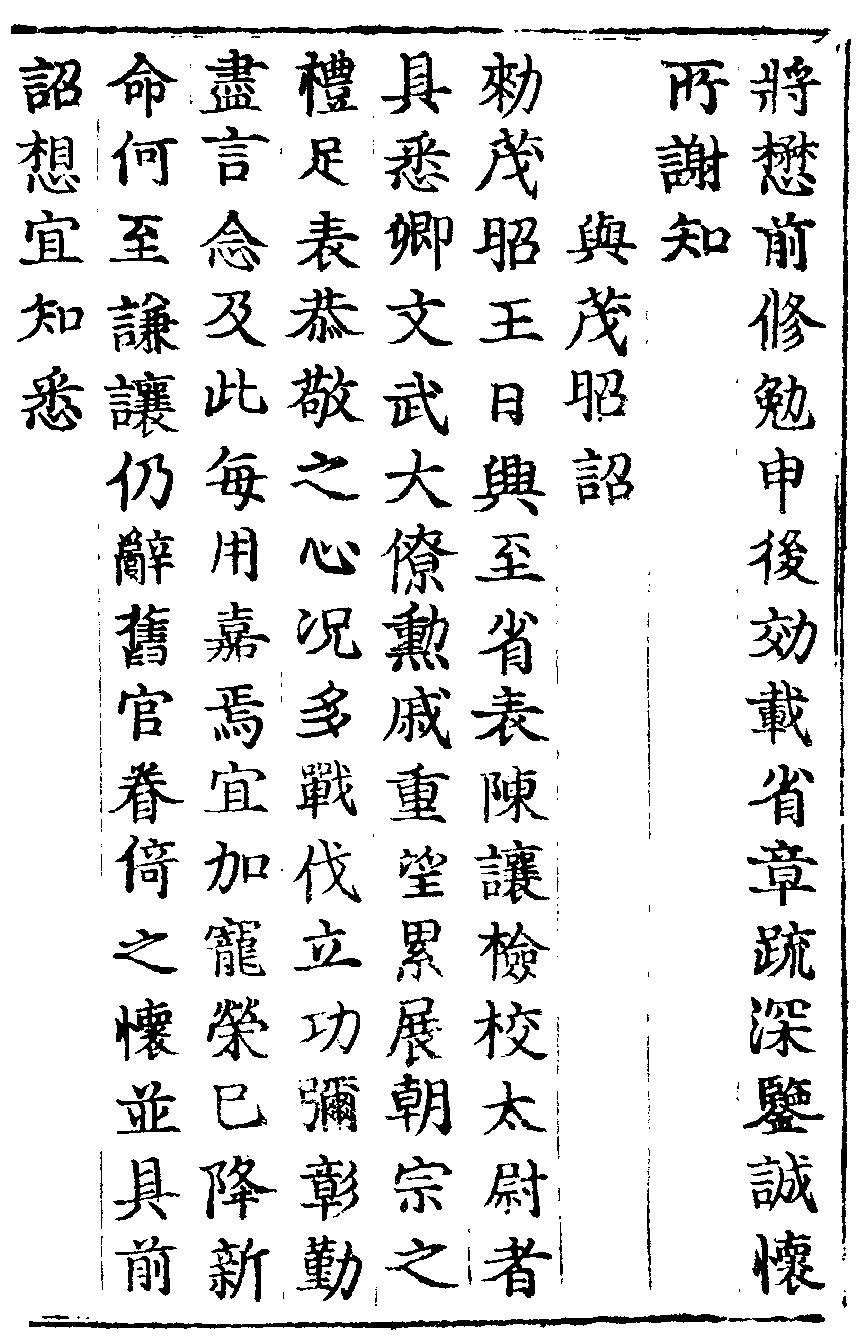 將懋前修勉申後効載省章疏深鑒誠懷
所謝知
與茂昭詔
勑茂昭王日興至省表陳讓檢校太尉者
具悉卿文武大僚勳戚重望累展朝宗之
禮足表恭敬之心况多戰伐立功彌彰勤
盡言念及此每用嘉焉宜加寵榮已降新
命何至謙讓仍辭舊官眷倚之懷並具前
詔想宜知悉